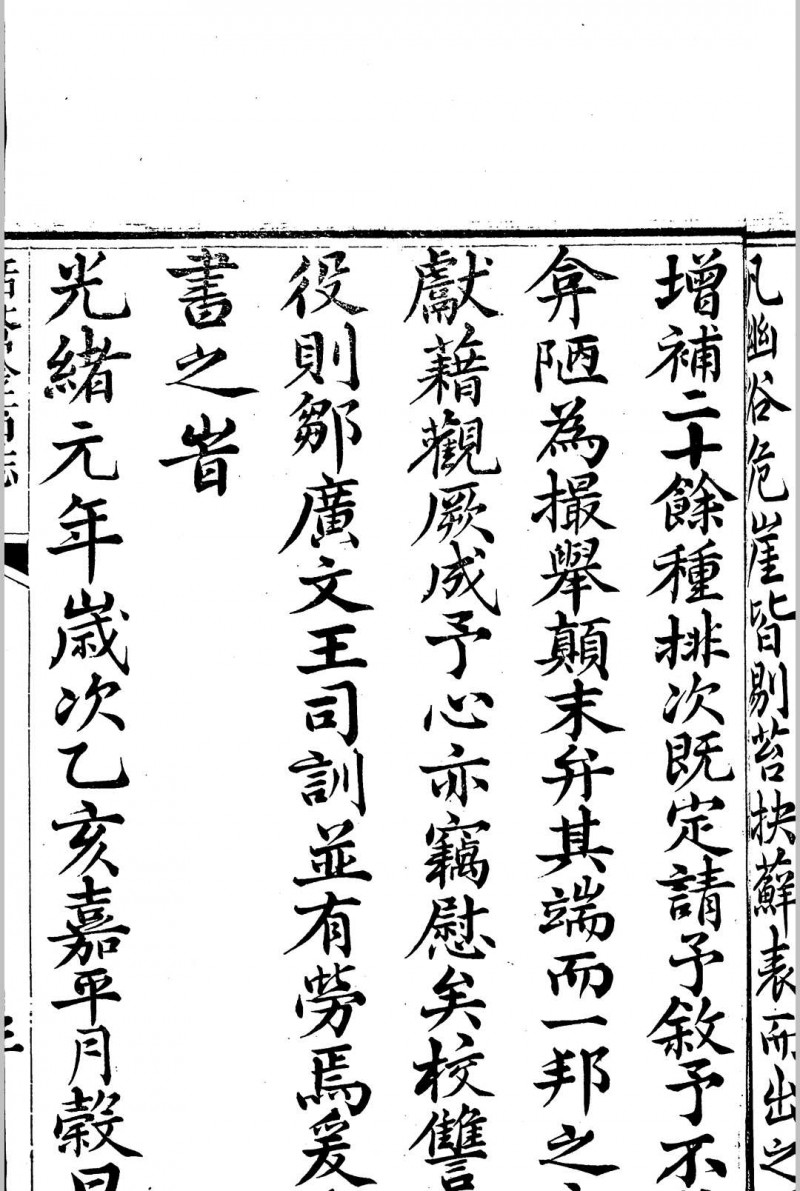 凡幽谷危崖皆剔苔抉蘚表而出之
增補二十餘種排次既定請予敘予不
弇陋為撮舉顛末弁其端而一邦之
獻藉觀厥成予心亦竊慰矣校讐
役則鄒廣文王司訓並有勞焉爰
書之旹
光緒元年歲次乙亥嘉平月穀
括蒼金石志